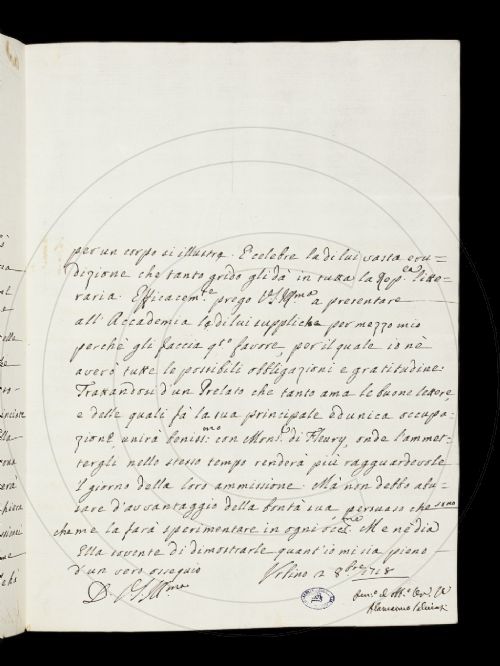 per un corpo si illustre. È celebre la di lui vasta eru=
dizione che tanto grido gli dà in tutta la Rep.ca litte=
raria. Efficacem.te prego V.S. Ill.ma a presentare
all'Accademia le di lui suppliche per mezzo mio
perchè gli faccia q.to favore per il quale io nè
averò tutte le possibili obbligazioni e gratitudine.
Trattandosi d'un Prelato che tanto ama le buone lettere
e delle quali fà la sua principale ed unica occupa=
zione, unirà beniss.mo con Mons.r di Fleury, onde l'ammet=
tergli nello stesso tempo renderà più ragguardevole
il giorno della loro ammissione. Mà non debbo abu=
sare d'avvantaggio della bontà sua persuaso che
che me la farà sperimentare in ogni Me ne dia
Ella sovente di dimostrarle quant'io mi sia pieno
d'un vero ossequio Urbino 2 8bre 1718
D. V.S. Ill.ma
Salviati